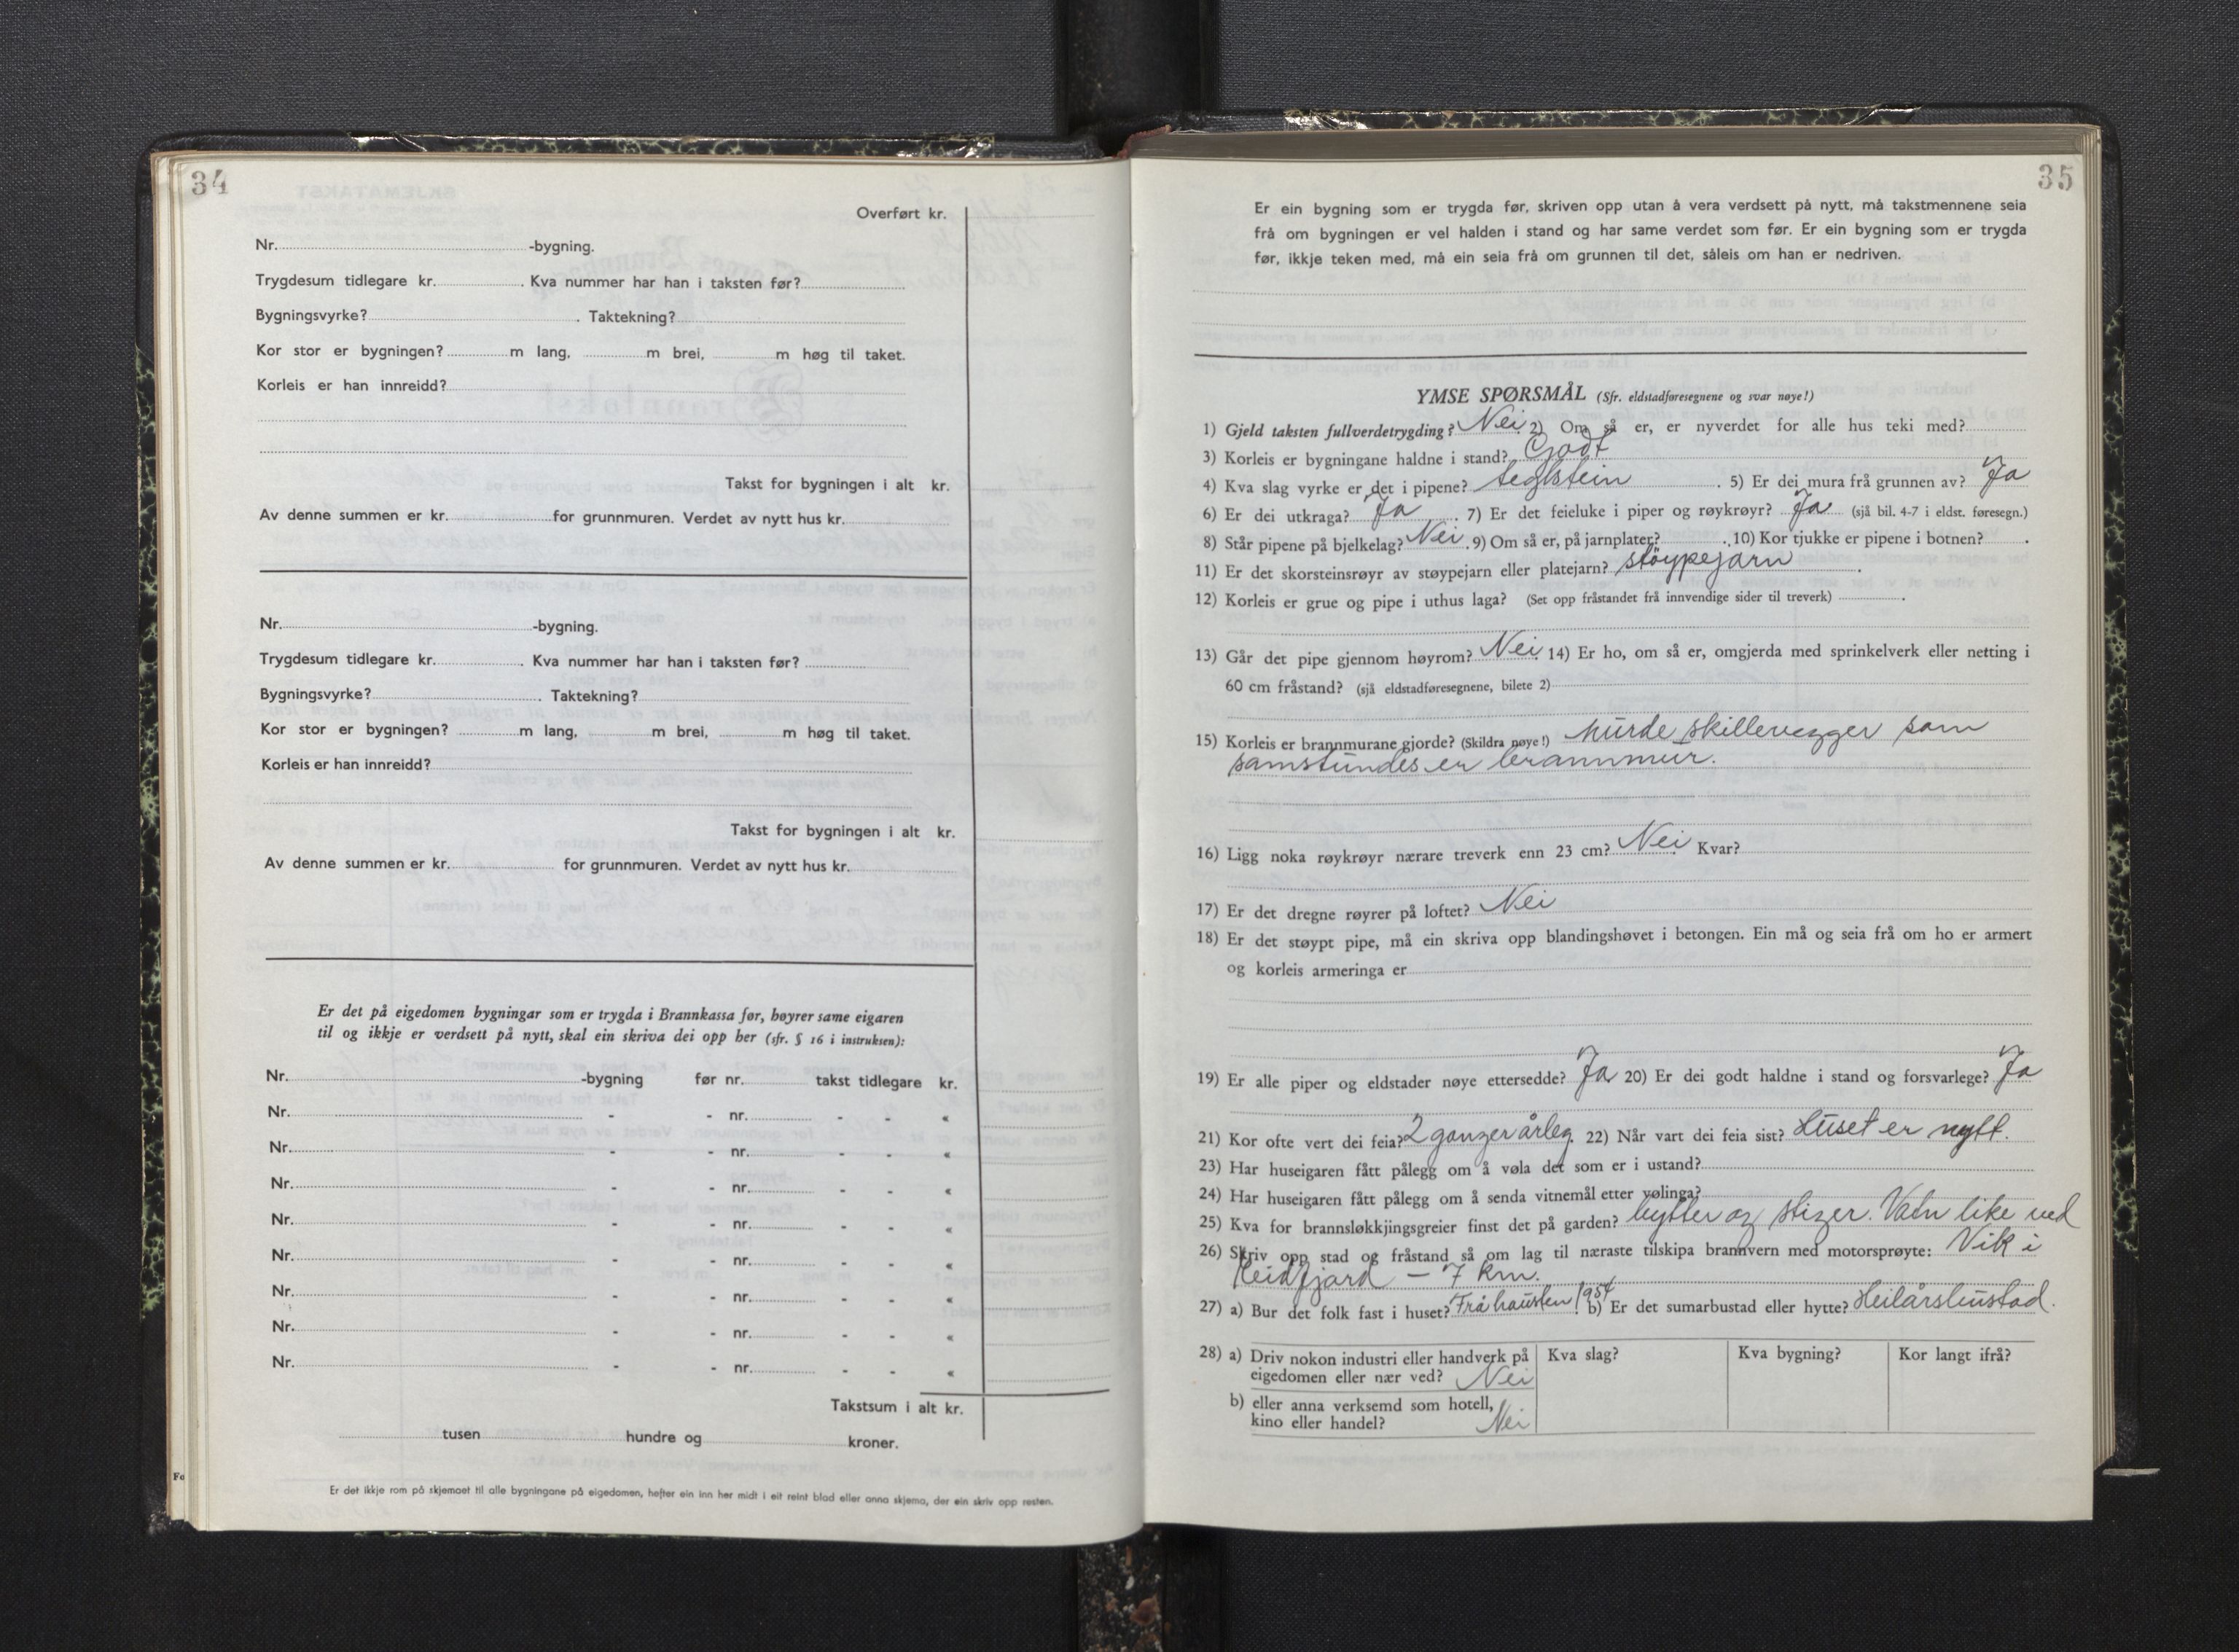 34
Overført kr.
Nr. -bygning.
Trygdesum tidlegare kr. . Kva nummer har han i taksten før?
Bygningsvyrke? . Taktekning?
Kor stor er bygningen? m lang, m brei, m høg til taket.
Korleis er han innreidd?
Takst for bygningen i alt kr.
Av denne summen er kr. for grunnmuren. Verdet av nytt hus kr.
Nr. -bygning.
Trygdesum tidlegare kr. . Kva nummer har han i taksten før?
Bygningsvyrke? . Taktekning?
Kor stor er bygningen? m lang, m brei, m høg til taket.
Korleis er han innreidd?
Takst for bygningen i alt kr.
Av denne summen er kr. for grunnmuren. Verdet av nytt hus kr.
Er det på eigedomen bygningar som er trygda i Brannkassa før, høyrer same eigaren
til og ikkje er verdsett på nytt, skal ein skriva dei opp her (sfr. § 16 i instruksen):
Nr. -bygning før nr. takst tidlegare kr.
Nr. - - nr. - - «
Nr. - - nr. - - «
Nr. - - nr. - - «
Nr. - - nr. - - «
Nr. - - nr. - - «
Nr. - - nr. - - «
Nr. - - nr. - - «
Nr. - - nr. - - «
Takstsum i alt kr.
tusen hundre og kroner.
Fo
Er det ikkje rom på skjemaet til alle bygningane på eigedomen, hefter ein inn her midt i eit reint blad eller anna skjema, der ein skriv opp resten.
35
Er ein bygning som er trygda før, skriven opp utan å vera verdsett på nytt, må takstmennene seia
frå om bygningen er vel halden i stand og har same verdet som før. Er ein bygning som er trygda
før, ikkje teken med, må ein seia frå om grunnen til det, såleis om han er nedriven.
YMSE SPØRSMÅL (Sfr. eldstadføresegnene og svar nøye!)
1) Gjeld taksten fullverdetrygding? Nei. 2) Om så er, er nyverdet for alle hus teki med?
3) Korleis er bygningane haldne i stand? Godt
4) Kva slag vyrke er det i pipene? teglstein . 5) Er dei mura frå grunnen av? Ja
6) Er dei utkraga? Ja . 7) Er det feieluke i piper og røykrøyr? Ja (sjå bil. 4-7 i eldst. føresegn.)
8) Står pipene på bjelkelag? Nei . 9) Om så er, på jarnplater? . 10) Kor tjukke er pipene i botnen? .
11) Er det skorsteinsrøyr av støypejarn eller platejarn? støypejarn .
12) Korleis er grue og pipe i uthus laga? (Set opp fråstandet frå innvendige sider til treverk) .
13) Går det pipe gjennom høyrom? Nei. 14) Er ho, om så er, omgjerda med sprinkelverk eller netting i
60 cm fråstand? (sjå eldstadføresegnene, bilete 2)
15) Korleis er brannmurane gjorde? (Skildra nøye!) Murde skillevegger som
samstundes er brannmur.
16) Ligg noka røykrøyr nærare treverk enn 23 cm? Nei. Kvar?
17) Er det dregne røyrer på loftet? Nei
18) Er det støypt pipe, må ein skriva opp blandingshøvet i betongen. Ein må og seia frå om ho er armert
og korleis armeringa er
19) Er alle piper og eldstader nøye ettersedde? Ja 20) Er dei godt haldne i stand og forsvarlege? Ja
21) Kor ofte vert dei feia? 2 gonger årleg. 22) Når vart dei feia sist? Huset er nytt.
23) Har huseigaren fått pålegg om å vøla det som er i ustand?
24) Har huseigaren fått pålegg om å senda vitnemål etter vølinga?
25) Kva for brannsløkkjingsgreier finst det på garden? bytter og stiger. Vatn like ved
26) Skriv opp stad og fråstand så om lag til næraste tilskipa brannvern med motorsprøyte: Vik i
Eidfjord – 7 km.
27) a) Bur det folk fast i huset? Frå hausten 1954. b) Er det sumarbustad eller hytte? Heilårsbustad.
28) a) Driv nokon industri eller handverk på
eigedomen eller nær ved? Nei
Kva slag? Kva bygning? Kor langt ifrå?
b) eller anna verksemd som hotell,
kino eller handel? Nei